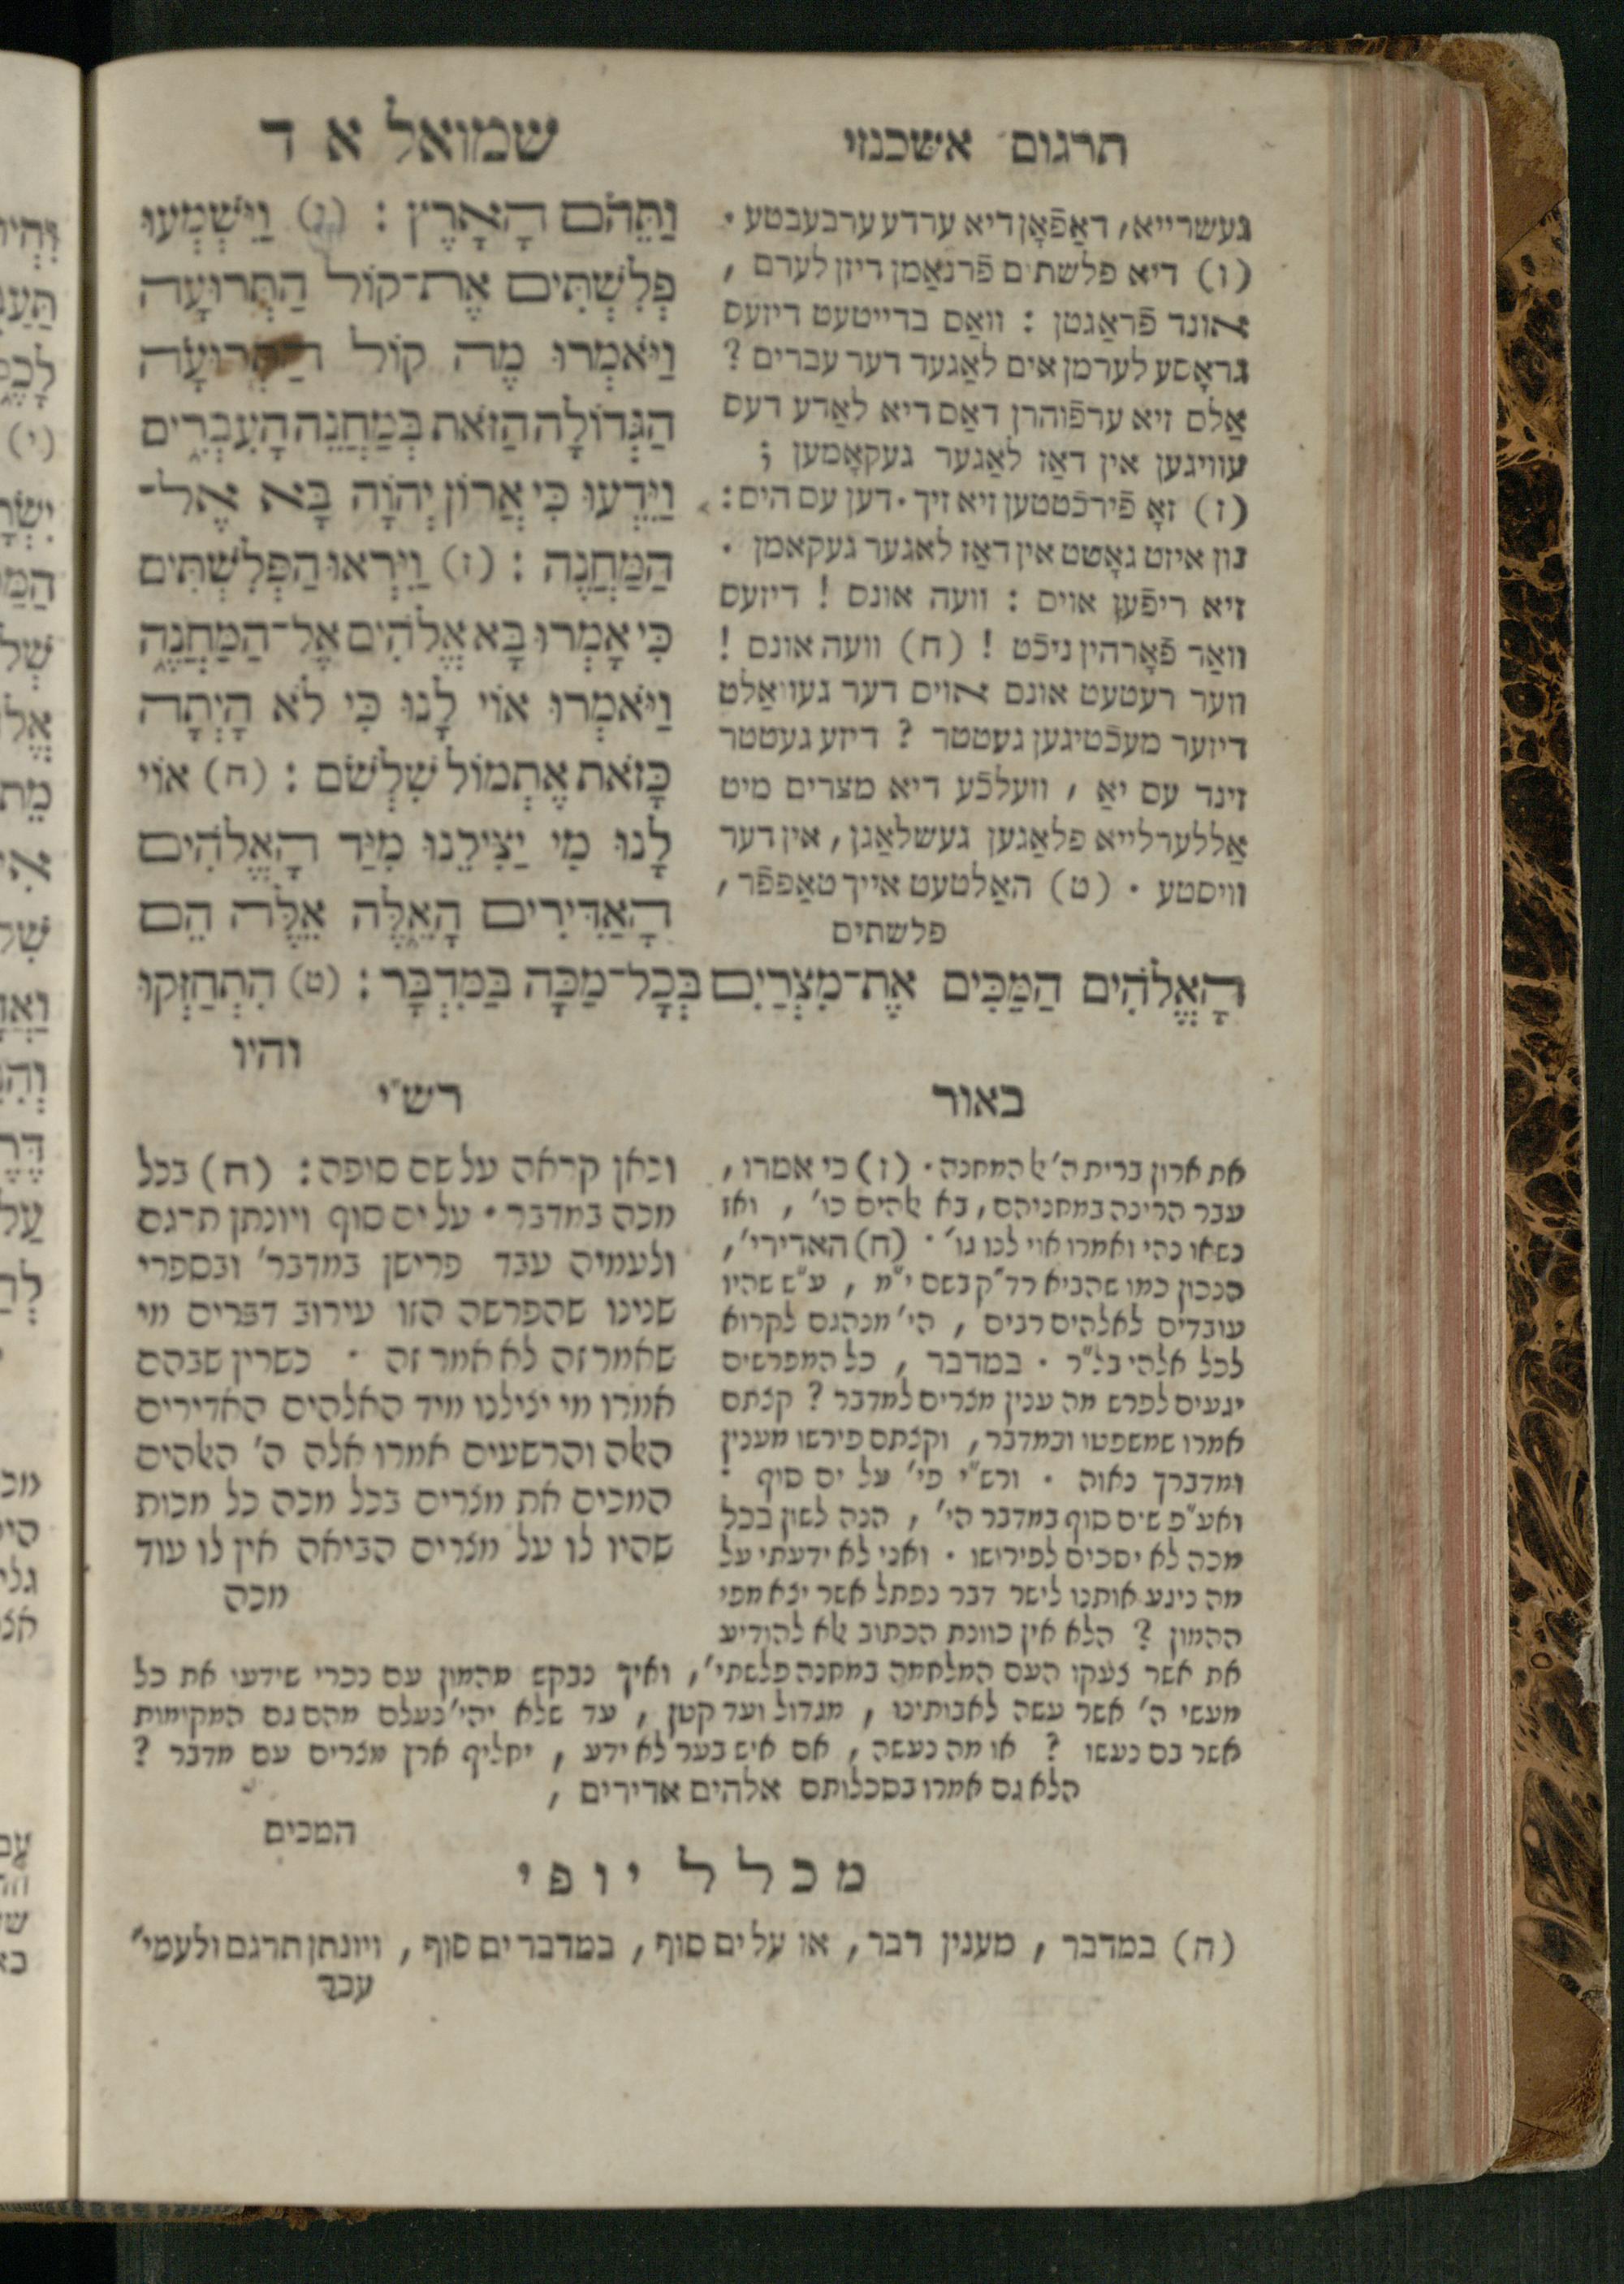 תרגום אשכנזי
שמואל א ד
געשרייא, דאַפֿאָן דיא ערדע ערבעבטע ·
(ו) דיא פלשתים פֿרנאַמן דיזן לערם ,
אונד פֿראַגטן : וואַס בדייטעט דיזעס
גראָסע לערמן אים לאַגער דער עברים ?
אַלס זיא ערפֿוהרן דאַס דיא לאַדע דעס
עוויגען אין דאַז לאַגער געקאָמען ;
(ז) זאָ פֿירכֿטטען זיא זיך · דען עס הים :
נון איזט גאָטט אין דאַז לאגער געקאמן .
זיא ריפֿען אויס : וועה אונס ! דיזעס
וואַר פֿאָרהין ניכֿט ! (ח) וועה אונס !
ווער רעטעט אונס אויס דער געוואַלט
דיזער מעכֿטיגען געטטר ? דיזע געטטר
זינד עס יאַ , וועלכֿע דיא מצרים מיט
אַללערלייא פלאַגען געשלאַגן , אין דער
וויסטע · (ט) האַלטעט אייך טאַפפֿר ,
פלשתים
וַתֵּהֹם הָאָרֶץ : (ו) וַיִּשְׁמְעוּ
פְלִשְׁתִּים אֶת־קוֹל הַתְּרוּעָה
וַיֹּאמְרוּ מֶה קוֹל הַתְּרוּעָה
הַגְּדוֹלָה הַזֹּאת בְּמַחֲנֵה הָעִבְרִים
וַיֵּדְעוּ כִּי אֲרוֹן יְהוָֹה בָּא אֶל־
הַמַּחֲנֶה : (ז) וַיִּרְאוּ הַפְּלִשְׁתִּים
כִּי אָמְרוּ בָּא אֱלֹהִים אֶל־הַמַּחֲנֶה
וַיֹּאמְרוּ אוֹי לָנוּ כִּי לֹא הָיְתָה
כָּזֹאת אֶתְמוֹל שִׁלְשֹׁם : (ח) אוֹי
לָנוּ מִי יַצִּילֵנוּ מִיַּד הָאֱלֹהִים
הָאַדִּירִים הָאֵלֶּה אֵלֶּה הֵם
הָאֱלֹהִים הַמַּכִּים אֶת־מִצְרַיִם בְּכָל־מַכָּה בַּמִּדְבָּר : (ט) הִתְחַזְּקוּ
והיו
באור
רש״י
את ארון ברית ה׳ אל המחנה · (ז) כי אמרו ,
עבר הרינה במחניהם , בא אלהים כו׳ , ואז
נשאו נהי ואמרו אוי לנו גו׳ · (ח) האדירי׳ ,
הנכון כמו שהביא רד״ק בשם י״מ , ע״ש שהיו
עובדים לאלהים רבים , הי׳ מנהגם לקרוא
לכל אלהי בל״ר · במדבר , כל המפרשים
יגעים לפרש מה ענין מצרים למדבר ? קצתם
אמרו שמשפטו ובמדבר , וקצתם פירשו מענין
ומדברך נאוה · ורש״י פי׳ על ים סוף ·
ואע״פ שים סוף במדבר הי׳ , הנה לשון בכל
מכה לא יסכים לפירושו · ואני לא ידעתי על
מה ניגע אותנו לישר דבר נפתל אשר יצא מפי
ההמון ? הלא אין כוונת הכתוב אלא להודיע
את אשר צעקו העם המלחמה במחנה פלשתי׳ , ואיך נבקש מהמון עם נכרי שידעו את כל
מעשי ה׳ אשר עשה לאבותינו , מגדול ועד קטן , עד שלא יהי׳ נעלם מהם גם המקומות
אשר בם נעשו ? או מה נעשה , אם איש בער לא ידע , יחליף ארץ מצרים עם מדבר ?
הלא גם אמרו בסכלותם אלהים אדירים ,
המכים
וכאן קראה על שם סופה : (ח) בכל
מכה במדבר · על ים סוף ויונתן תרגם
ולעמיה עבד פרישן במדבר׳ ובספרי
שנינו שהפרשה הזו עירוב דברים מי
שאמר זה לא אמר זה · כשרין שבהם
אמרו מי יצילנו מיד האלהים האדירים
האלה והרשעים אמרו אלה ה׳ האלהים
המכים את מצרים בכל מכה כל מכות
שהיו לו על מצרים הביאה אין לו עוד
מכה
מכלל יופי
(ח) במדבר , מענין דבר , או על ים סוף , במדבר ים סוף , ויונתן תרגם ולעמי״
עבד